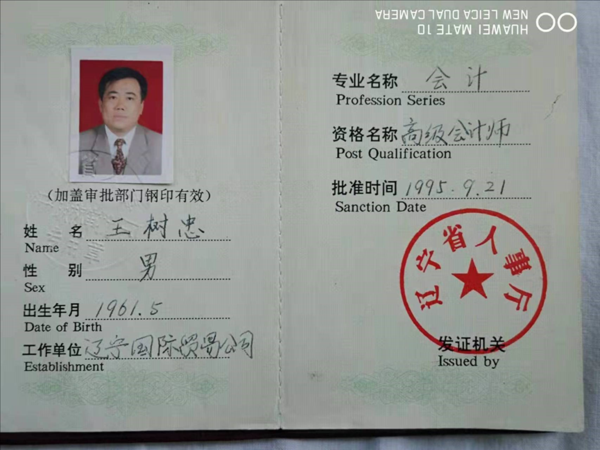 HUAWEI MATE 10
NEW LEICA DUAL CAMERA
(加盖审批部门钢印有效)
姓 名 王树忠
Name
性 别 男
Sex
出生年月 1961.5
Date of Birth
工作单位 辽宁国际贸易公司
Establishment
专业名称 会计
Profession Series
资格名称 高级会计师
Post Qualification
批准时间 1995.9.21
Sanction Date
辽宁省人事厅
发证机关
Issued by